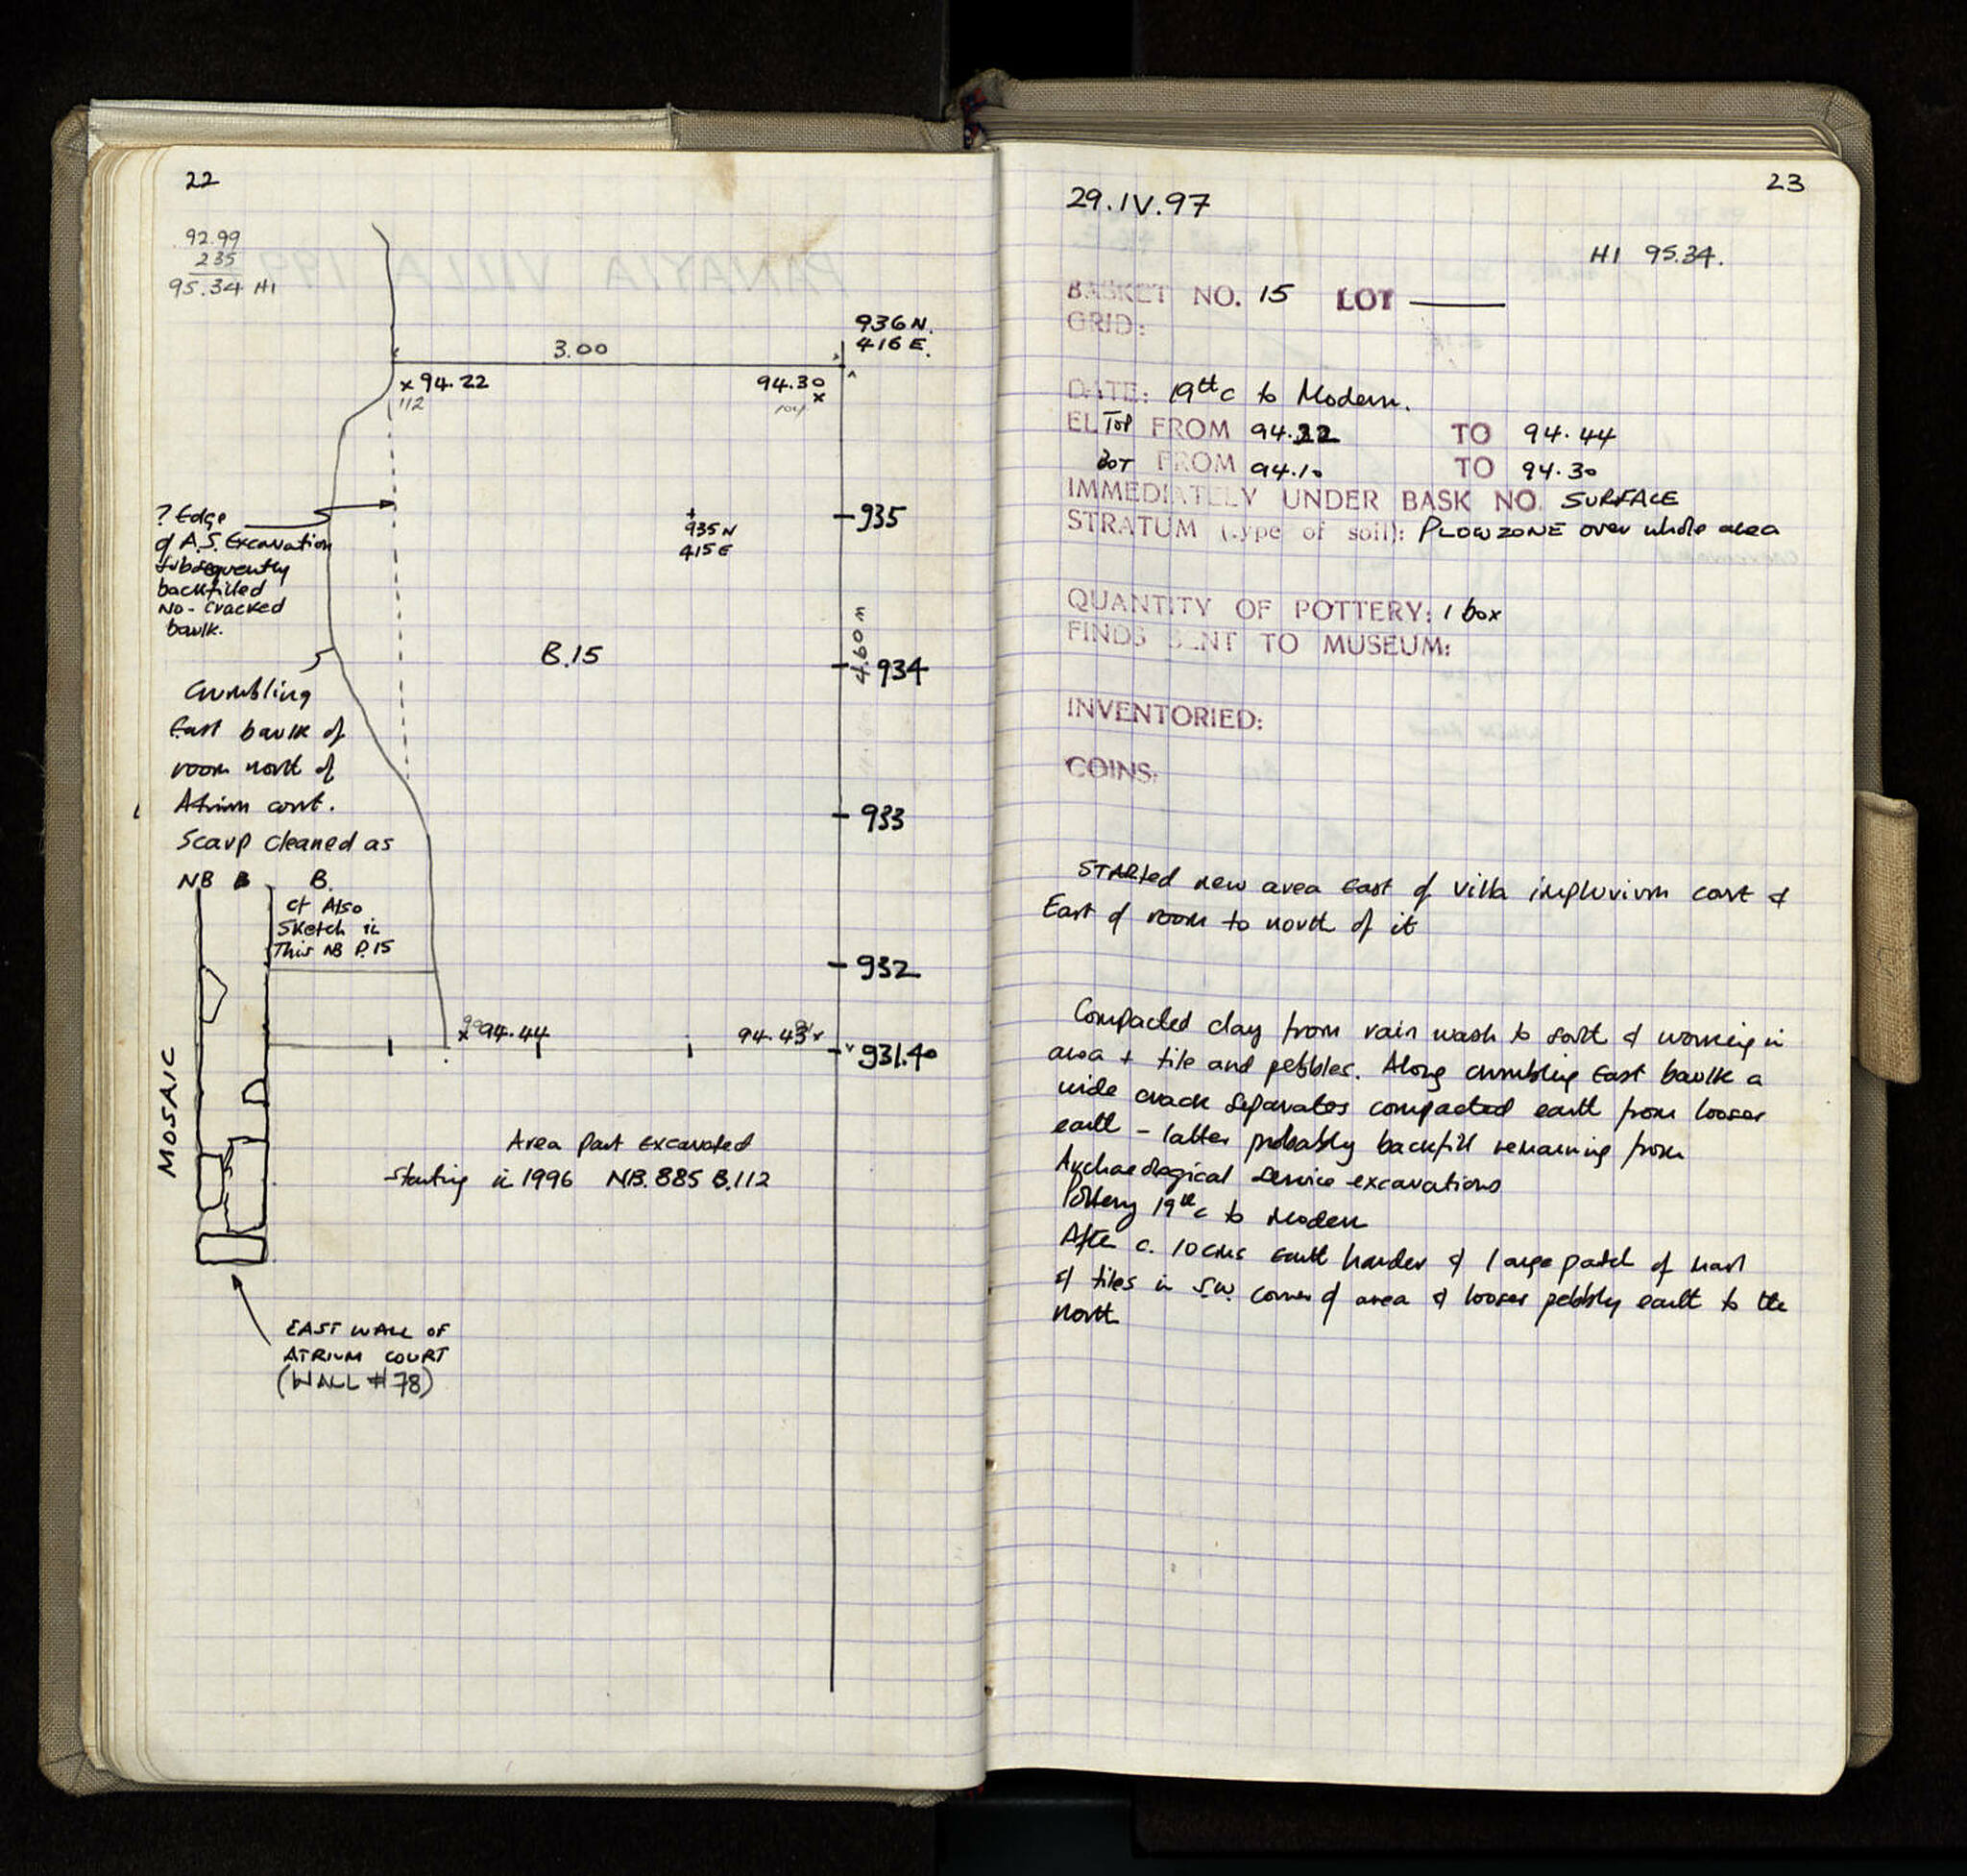 22
92.99
235
95.34 HI
936 N.
416 E.
3.00
x 94.22
112
94.30
x
? Edge
of A.S. Excavation
subsequently
backfilled
NO - cracked
baulk.
935
935 N
415 E
4.60 m
B.15
934
Crumbling
East baulk of
room north of
Atrium court.
Scarp cleaned as
933
NB B B.
cf Also
Sketch in
This NB P.15
932
x 94.44
94.43 x
931.40
MOSAIC
Area Part Excavated
starting in 1996 NB. 885 B.112
EAST WALL OF
ATRIUM COURT
(WALL #78)
23
29.IV.97
HI 95.34.
BASKET NO. 15 LOT ——
GRID:
DATE: 19th c to Modern.
EL TOP FROM 94.22 TO 94.44
BOT FROM 94.10 TO 94.30
IMMEDIATELY UNDER BASK NO. SURFACE
STRATUM (type of soil): PLOWZONE over whole area
QUANTITY OF POTTERY: 1 box
FINDS SENT TO MUSEUM:
INVENTORIED:
COINS:
STARted new area East of villa impluvium court &
East of room to north of it
Compacted clay from rain wash to sort & working in
area + tile and pebbles. Along crumbling East baulk a
wide crack separates compacted earth from looser
earth - latter probably backfill remaining from
Archaeological Service excavations
Pottery 19th c to Modern
After c. 10 cms earth harder & large patch of marl
& tiles in S.W. corner of area & looser pebbly earth to the
north